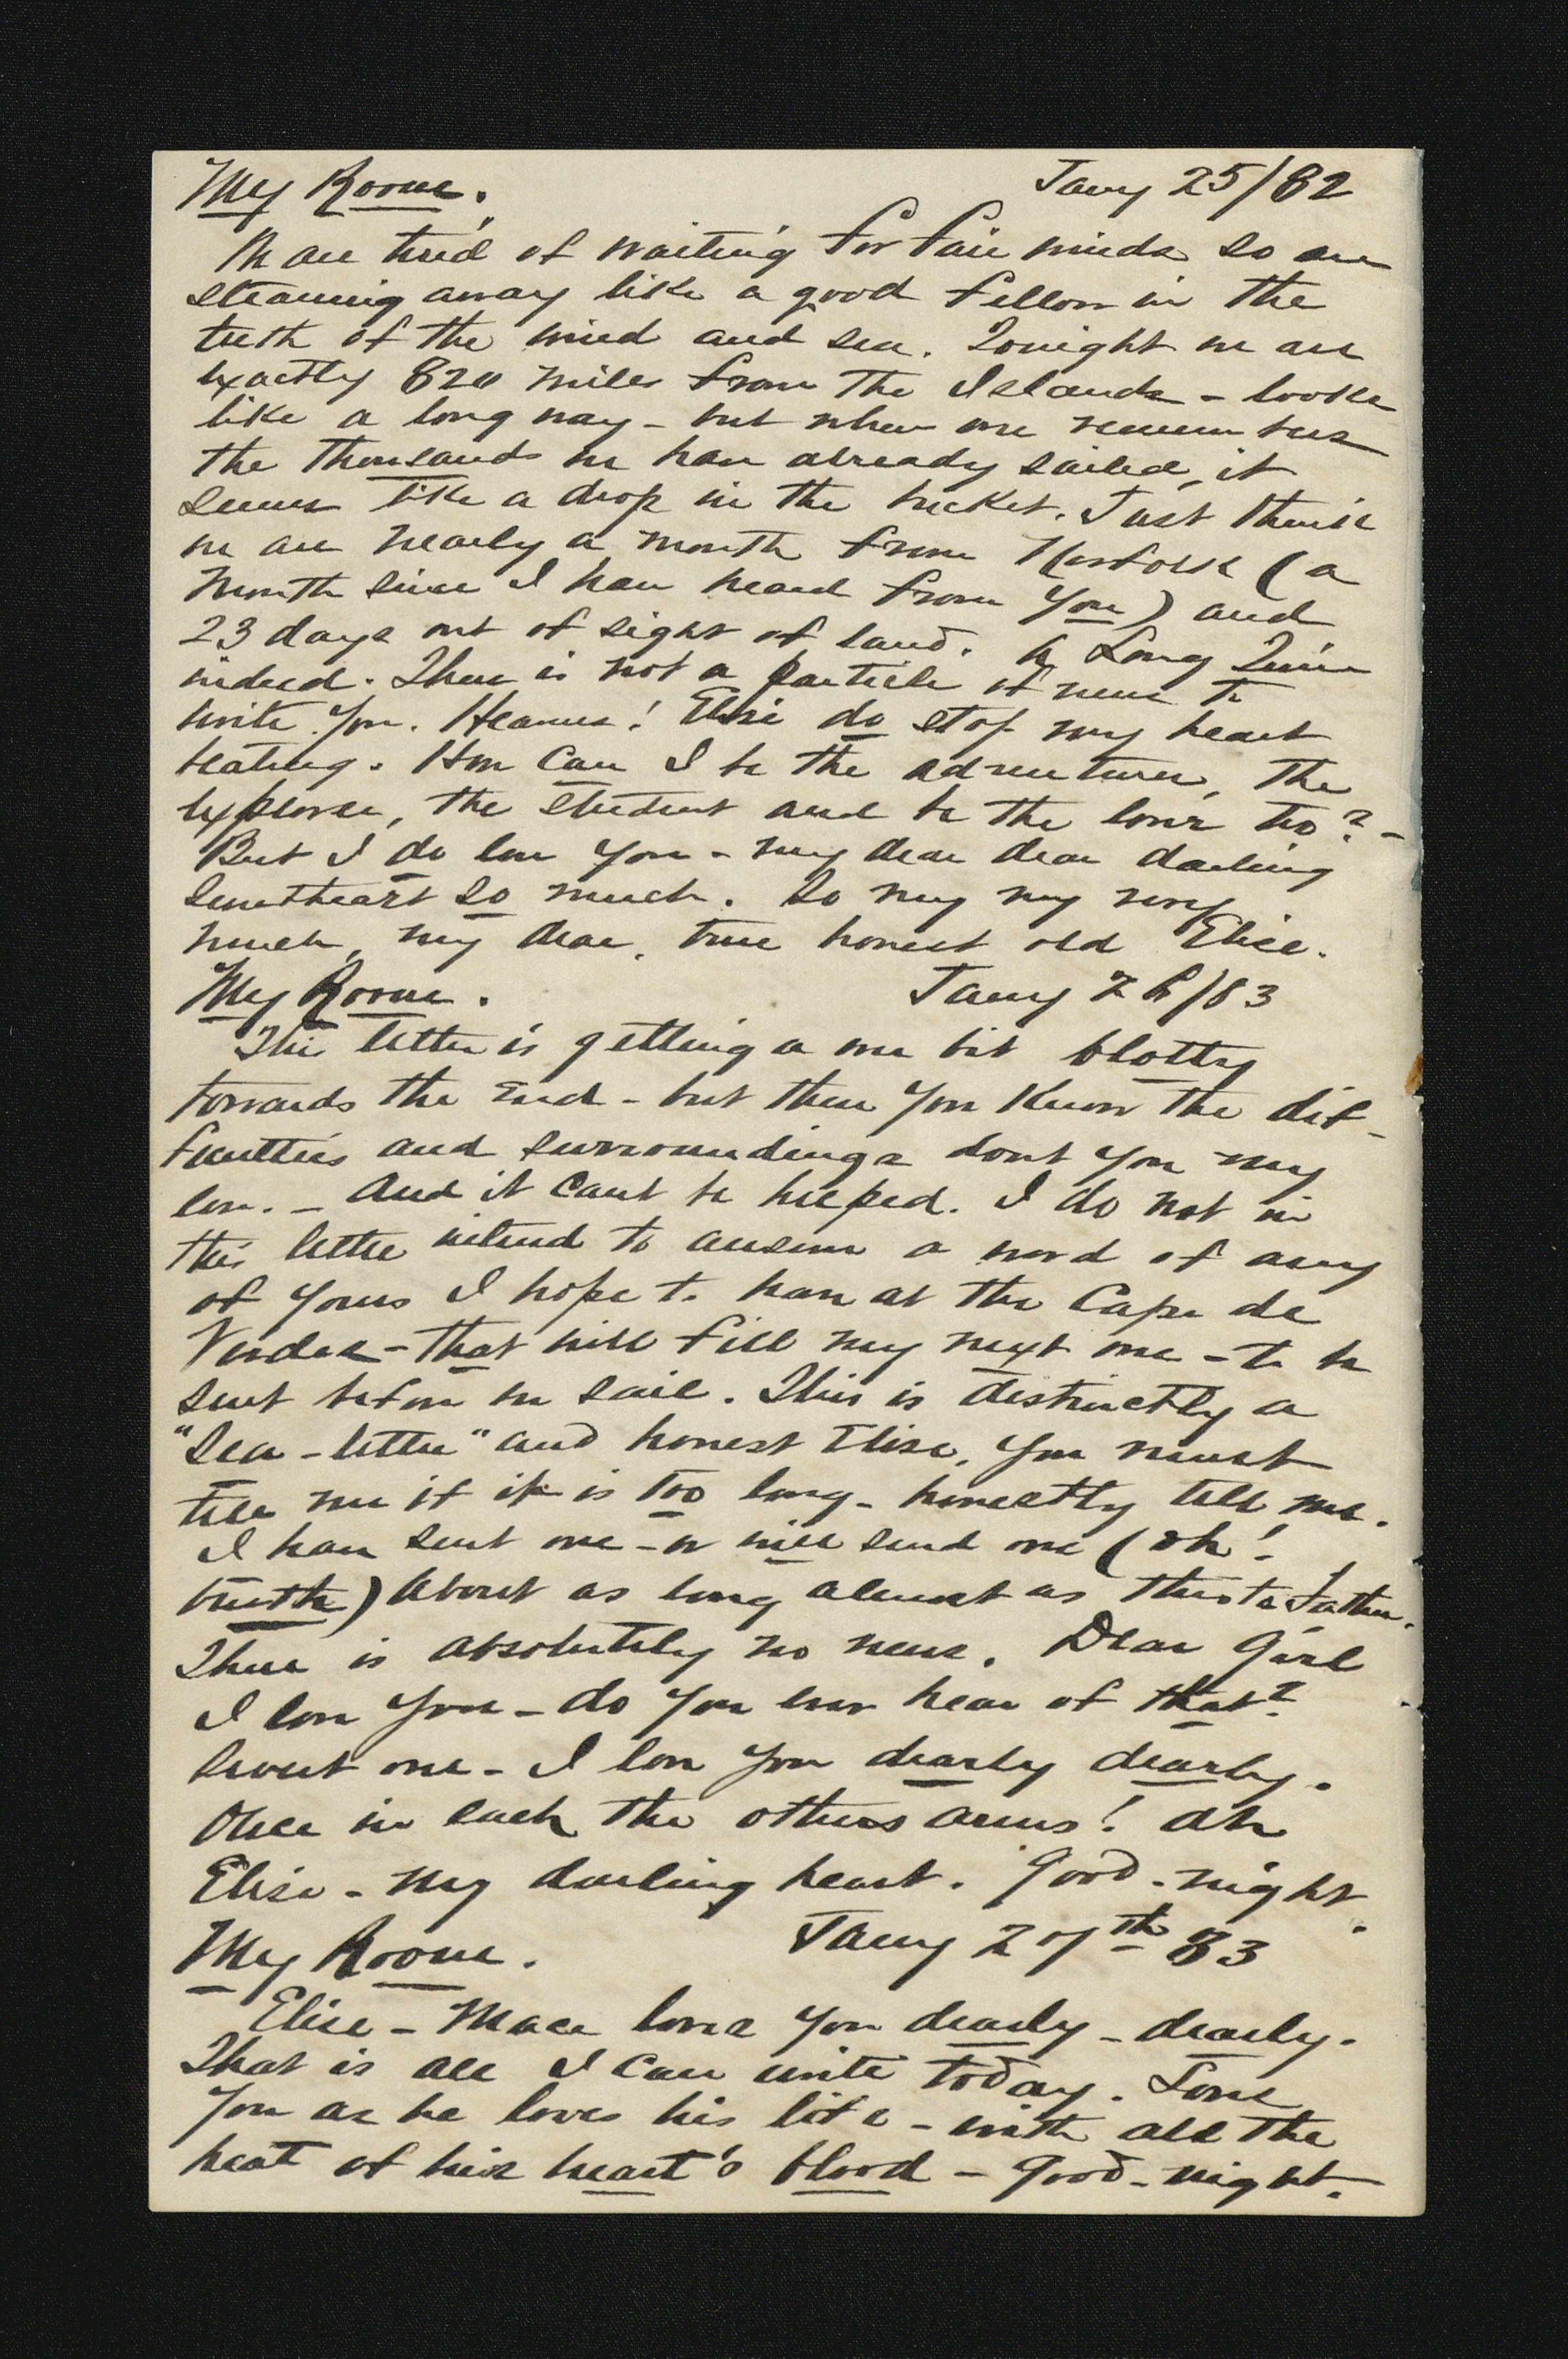 My Room. Jany 25/82
We are tired of waiting for fair winds so are
steaming away like a good fellow in the
teeth of the wind and sea. Tonight we are
exactly 820 miles from the Islands - looks
like a long way - but when one remembers
the thousands we have already sailed, it
seems like a drop in the bucket. Just think
we are nearly a month from Norfolk (a
month since I have heard from you) and
23 days out of sight of land. A Long Time
indeed. There is not a particle of news to
write you. Heavens! Elise do stop my heart
beating. How can I be the adventurer, the
explorer, the student and be the lover too? -
But I do love you - my dear dear darling
Sweetheart so much. So very very very
much, my dear, true honest old Elise.
My Room. Jany 26/83
This letter is getting a wee bit blotty
towards the End - but then you know the dif-
ficulties and surroundings dont you my
love. - And it cant be helped. I do not in
this letter intend to answer a word of any
of yours I hope to have at the Cape de
Verdes - that will fill my next one - to be
sent before we sail. This is distinctly a
"Sea-letter" and honest Elise, you must
tell me if it is too long - honestly tell me.
I have sent one - or will send one (oh!
truth) about as long almost as this to Father.
There is absolutely no news. Dear Girl
I love you - do you ever hear of that?
Sweet one - I love you dearly dearly.
Once in each the others arms! Ah
Elise - my darling heart. Good-night.
My Room. Jany 27th 83
Elise - Mace loves you dearly - dearly.
That is all I can write today. Loves
you as he loves his life - with all the
heat of his heart's blood - Good-night.